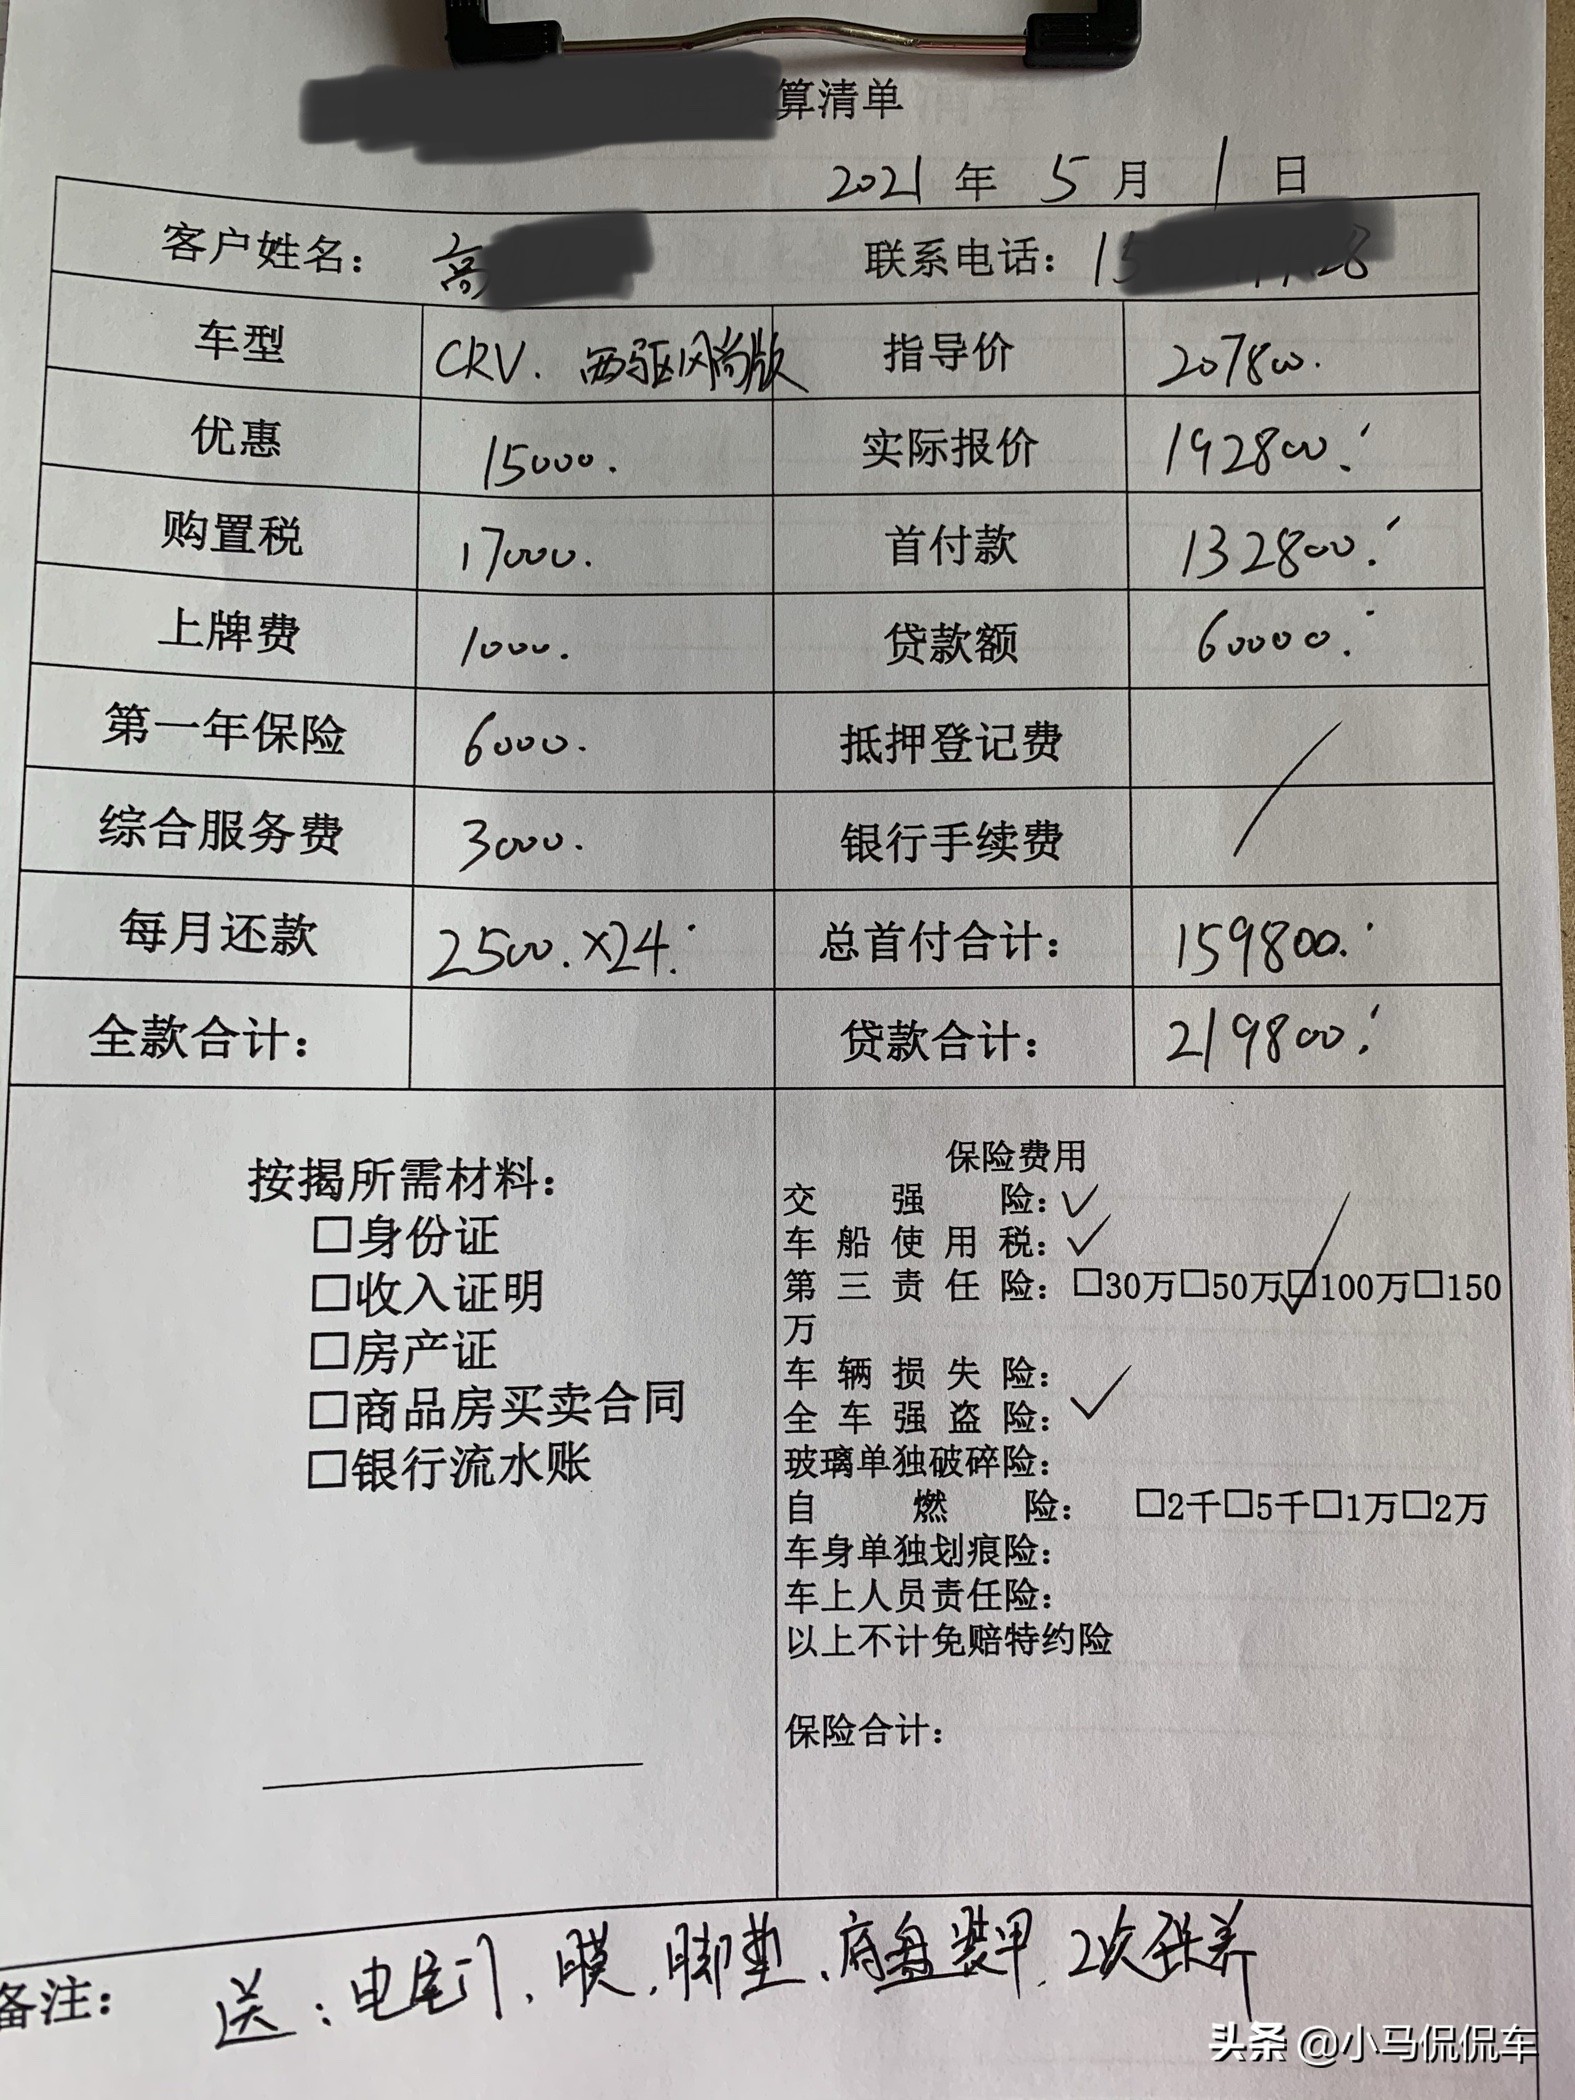 算清单
2021 年 5 月 1 日
客户姓名： 高 联系电话： 15 28
车型 CRV. 两驱风尚版 指导价 207800.
优惠 15000. 实际报价 192800.
购置税 17000. 首付款 132800.
上牌费 1000. 贷款额 60000.
第一年保险 6000. 抵押登记费
综合服务费 3000. 银行手续费
每月还款 2500.×24. 总首付合计： 159800.
全款合计： 贷款合计： 219800.
按揭所需材料：
□身份证
□收入证明
□房产证
□商品房买卖合同
□银行流水账
保险费用
交强险：✓
车船使用税：✓
第三责任险：□30万□50万☑100万□150
万
车辆损失险：
全车强盗险：✓
玻璃单独破碎险：
自燃险： □2千□5千□1万□2万
车身单独划痕险：
车上人员责任险：
以上不计免赔特约险
保险合计：
备注： 送：电尾门、膜、脚垫、底盘装甲、2次保养
头条 @小马侃侃车